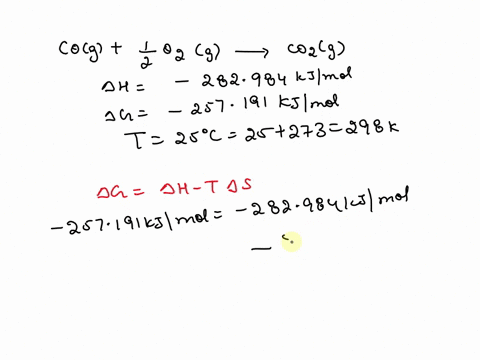 CO(g) + 1/2 O2 (g) → CO2(g)
ΔH = - 282.984 KJ/mol
ΔG = - 257.191 KJ/mol
T = 25°C = 25+273 = 298 K
ΔG = ΔH - T ΔS
-257.191 KJ/mol = -282.984 KJ/mol
—